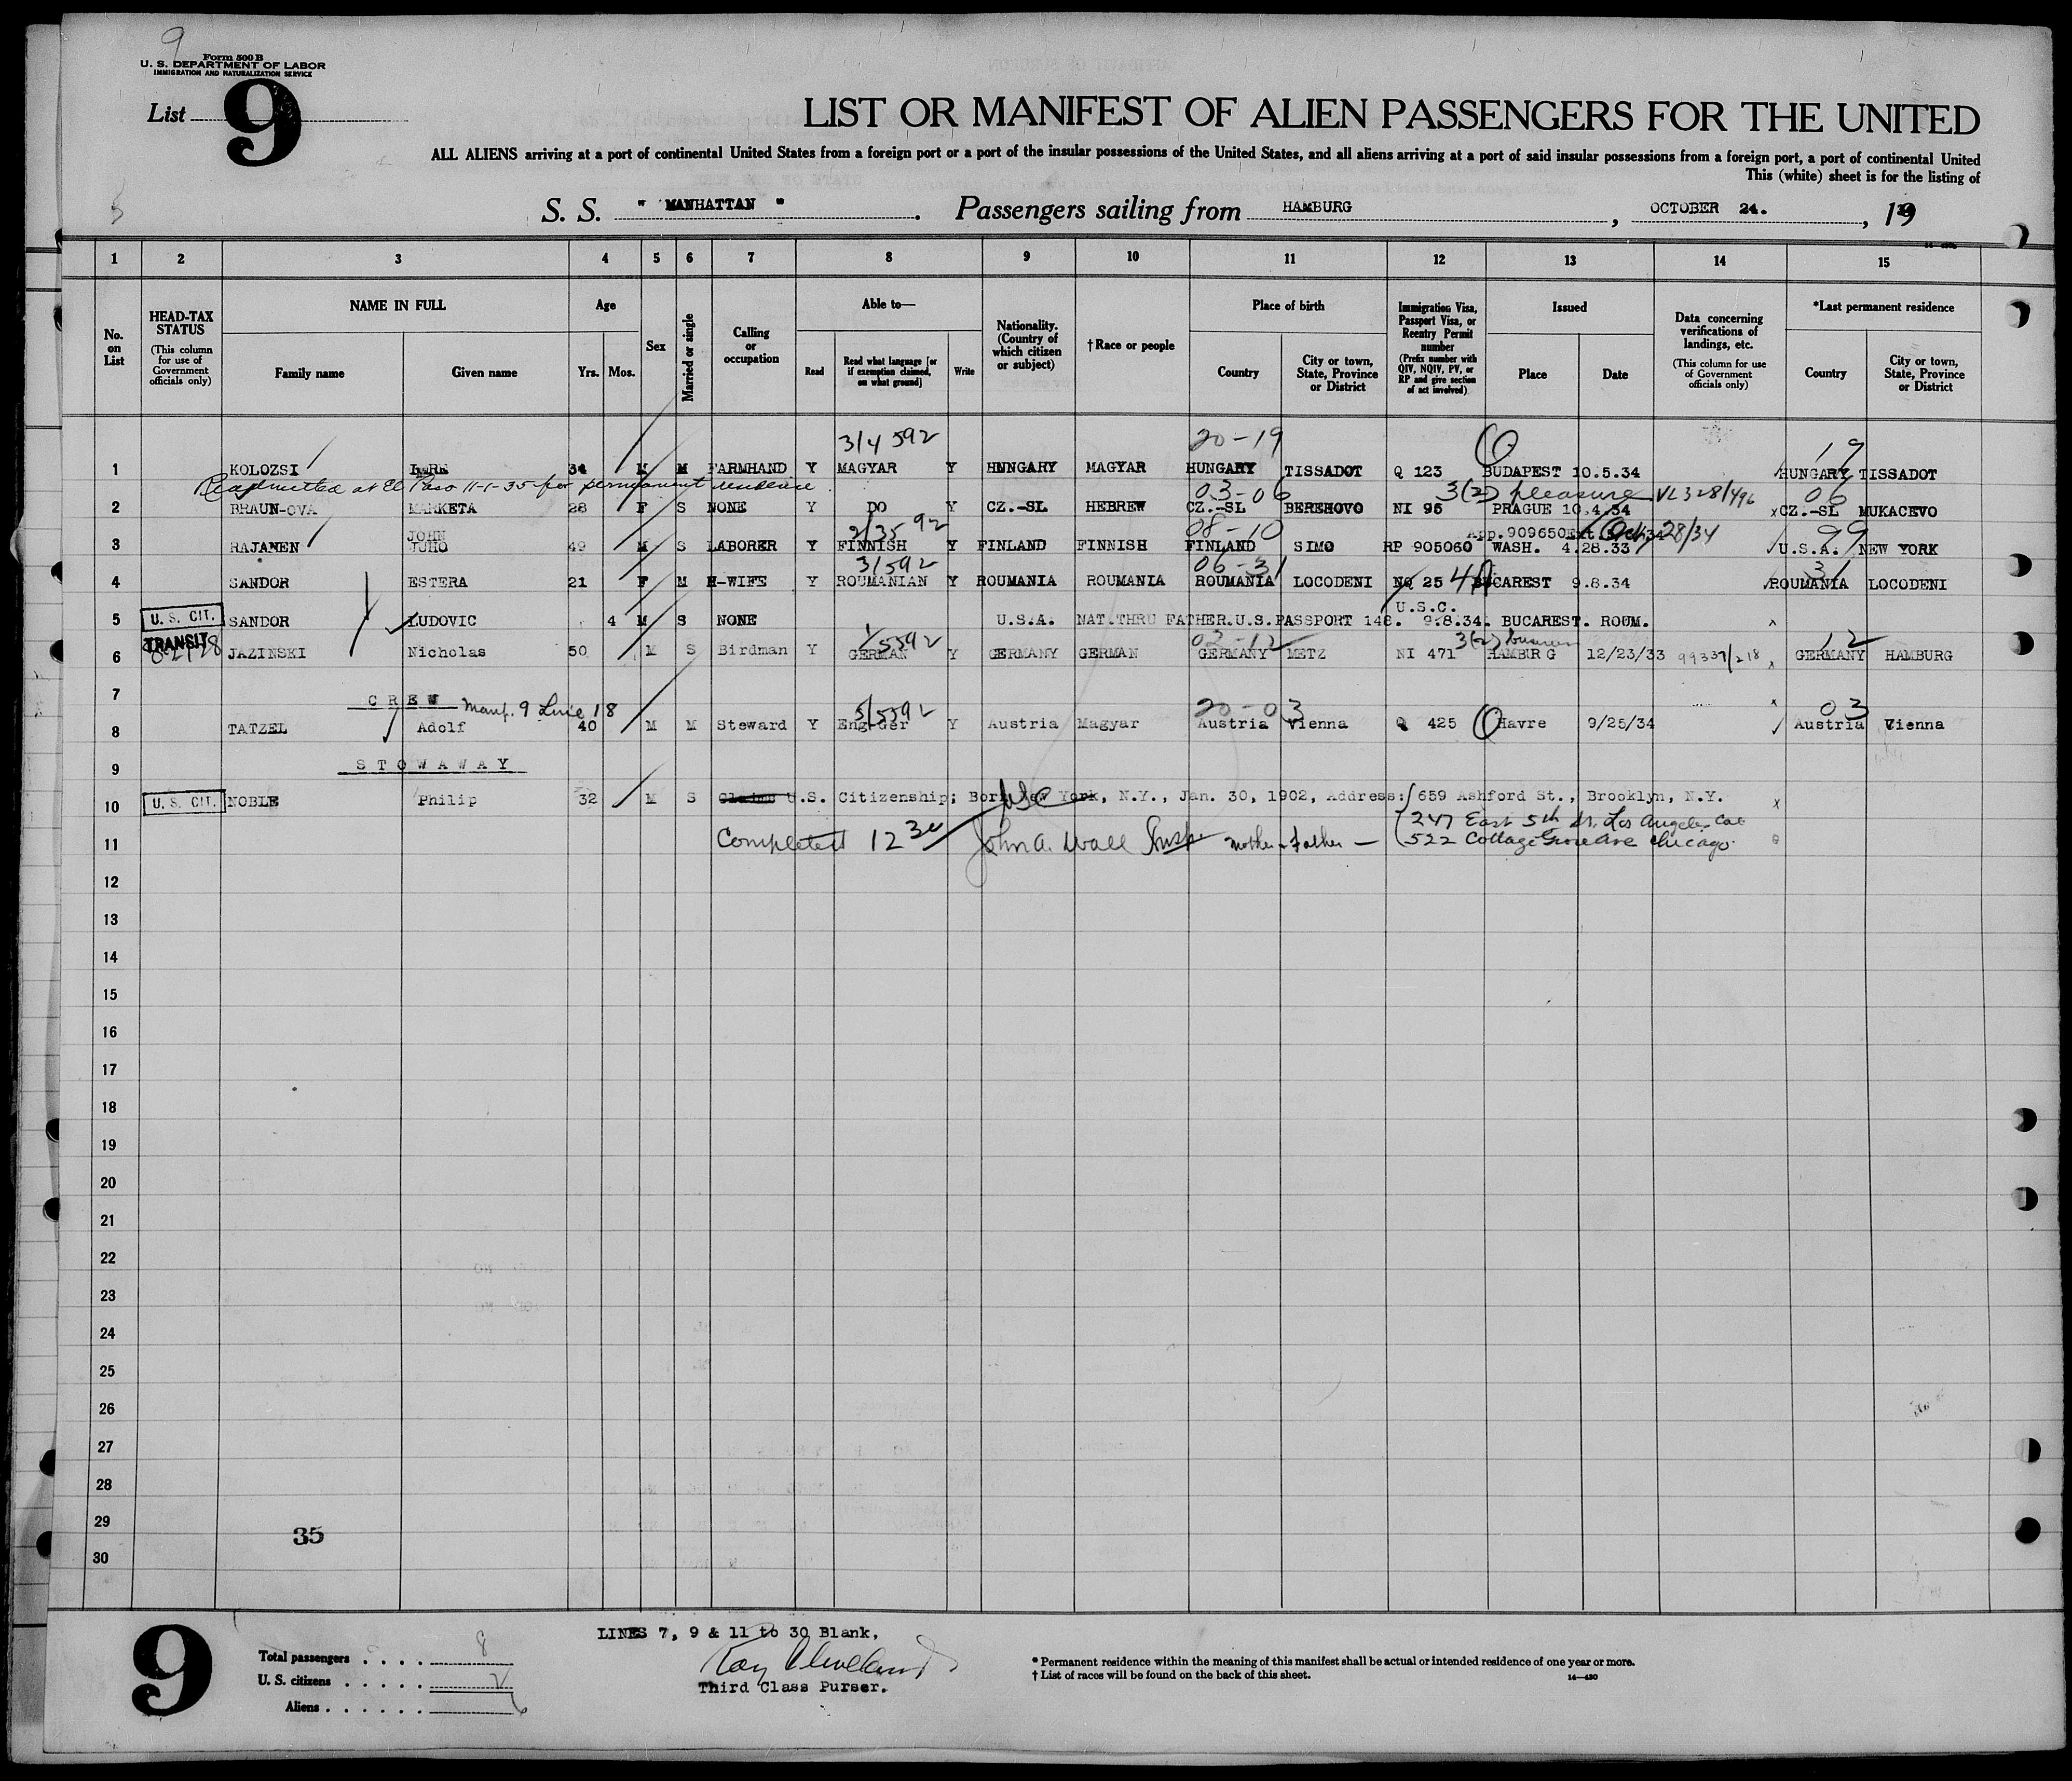 9
Form 500 B
U. S. DEPARTMENT OF LABOR
IMMIGRATION AND NATURALIZATION SERVICE
List 9
LIST OR MANIFEST OF ALIEN PASSENGERS FOR THE UNITED
ALL ALIENS arriving at a port of continental United States from a foreign port or a port of the insular possessions of the United States, and all aliens arriving at a port of said insular possessions from a foreign port, a port of continental United
This (white) sheet is for the listing of
S. S. " MANHATTAN " . Passengers sailing from HAMBURG , OCTOBER 24. , 19
1 2 3 4 5 6 7 8 9 10 11 12 13 14 15
No. on List
HEAD-TAX STATUS (This column for use of Government officials only)
NAME IN FULL Family name Given name
Age Yrs. Mos.
Sex
Married or single
Calling or occupation
Able to— Read Read what language [or if exemption claimed, on what ground] Write
Nationality. (Country of which citizen or subject)
†Race or people
Place of birth Country City or town, State, Province or District
Immigration Visa, Passport Visa, or Reentry Permit number (Prefix number with QIV, NQIV, PV, or RP and give section of act involved)
Issued Place Date
Data concerning verifications of landings, etc. (This column for use of Government officials only)
*Last permanent residence Country City or town, State, Province or District
3/4 592 20-19 19
1 KOLOZSI IMRE 34 M M FARMHAND Y MAGYAR Y HUNGARY MAGYAR HUNGARY TISSADOT Q 123 BUDAPEST 10.5.34 HUNGARY TISSADOT
Readmitted at El Paso 11-1-35 for permanent residence 03-06 3(2) pleasure VL328/496 06
2 BRAUN-OVA MARKETA 28 F S NONE Y DO Y CZ.-SL HEBREW CZ.-SL BEREHOVO NI 95 PRAGUE 10.4.34 CZ.-SL MUKACEVO
JOHN 08-10 App.909650 Ext. 28/34 99
3 RAJAMEN JUHO 49 M S LABORER Y FINNISH Y FINLAND FINNISH FINLAND SIMO RP 905060 WASH. 4.28.33 U.S.A. NEW YORK
3/592 06-31 31
4 SANDOR ESTERA 21 F M H-WIFE Y ROUMANIAN Y ROUMANIA ROUMANIA ROUMANIA LOCODENI NQ 25 BUCAREST 9.8.34 ROUMANIA LOCODENI
U.S.C.
5 U. S. CIT. SANDOR LUDOVIC 4 M S NONE U.S.A. NAT.THRU FATHER.U.S.PASSPORT 148. 9.8.34. BUCAREST. ROUM.
TRANSIT 03-12 3(2) 12
6 JAZINSKI Nicholas 50 M S Birdman Y GERMAN Y GERMANY GERMAN GERMANY METZ NI 471 HAMBURG 12/23/33 99337/218 GERMANY HAMBURG
7 CREW Manf. 9 Line 18
5/5592 20-03 03
8 TATZEL Adolf 40 M M Steward Y Eng-Ger Y Austria Magyar Austria Vienna Q 425 Havre 9/25/34 Austria Vienna
9 STOWAWAY
10 U. S. CIT. NOBLE Philip 32 M S Claims U.S. Citizenship; Born New York, N.Y., Jan. 30, 1902, Address: 659 Ashford St., Brooklyn, N.Y.
USC
247 East 5th St. Los Angeles Cal
11 Completed 12 30 John A. Wall Insp mother & Father — 522 Cottage Grove Ave Chicago.
12
13
14
15
16
17
18
19
20
21
22
23
24
25
26
27
28
29
35
30
9
LINES 7, 9 & 11 to 30 Blank.
Total passengers . . . . 8
Ray Cleveland
U. S. citizens . . . . . 2
Third Class Purser.
Aliens . . . . . . 6
* Permanent residence within the meaning of this manifest shall be actual or intended residence of one year or more.
† List of races will be found on the back of this sheet.
14—430